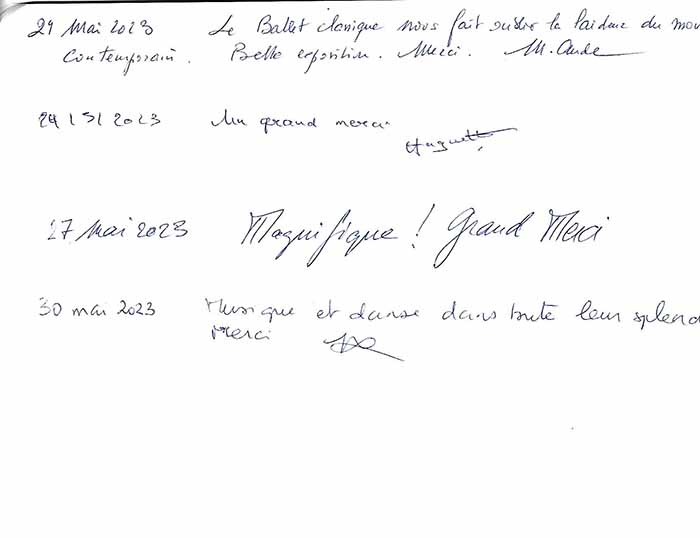 24 Mai 2023 Le Ballet classique nous fait oublier la laideur du mon
Contemporain. Belle exposition. Merci. M. Aude
24/5/2023 Un grand merci
Huguette
27 Mai 2023 Magnifique ! Grand Merci
30 mai 2023 Musique et danse dans toute leur splend
Merci